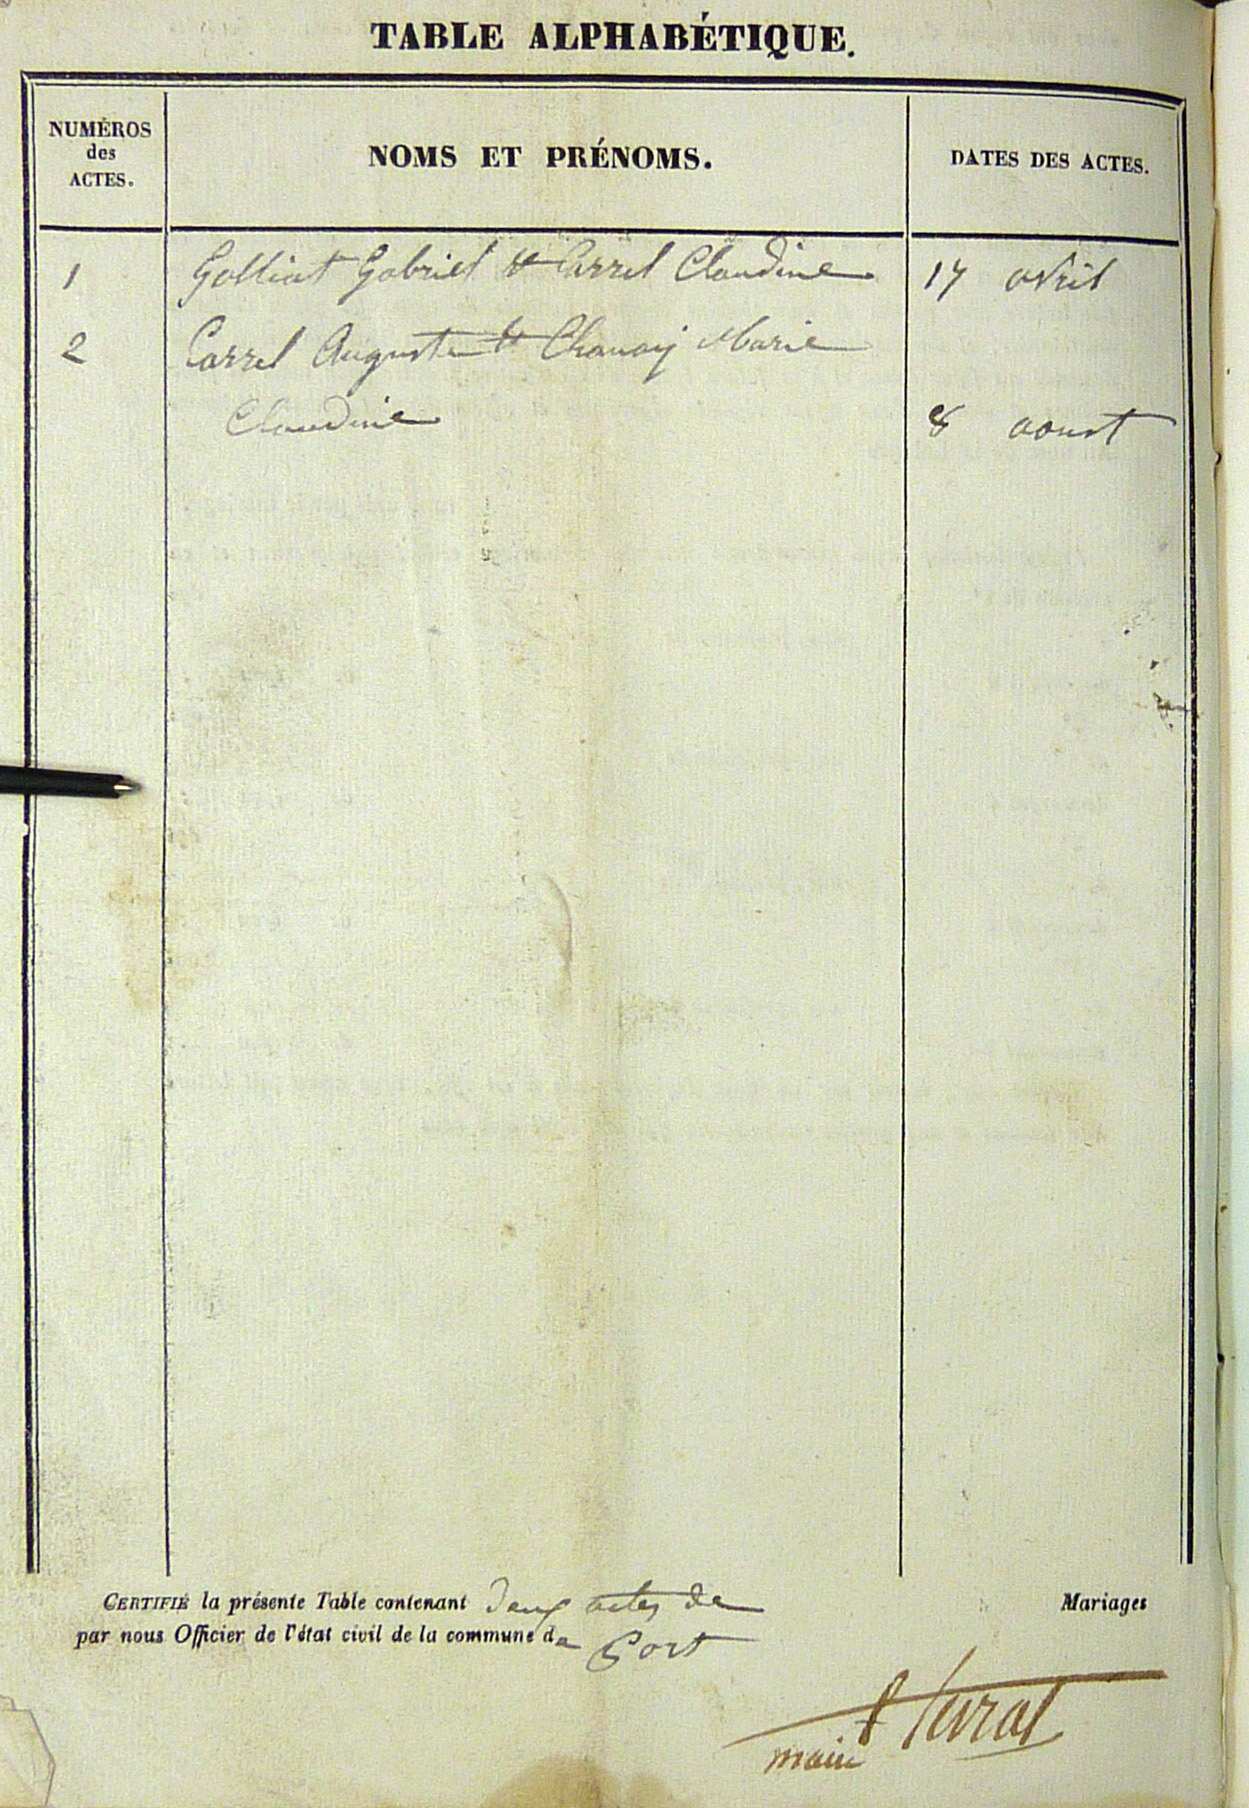 TABLE ALPHABÉTIQUE.
NUMÉROS
des
ACTES.
NOMS ET PRÉNOMS.
DATES DES ACTES.
1 Golliat Gabriel et Carrel Claudine 17 avril
2 Carrel Auguste et Chanay Marie
Claudine 8 aoust
CERTIFIÉ la présente Table contenant deux actes de Mariages
par nous Officier de l'état civil de la commune de Port
maire